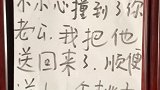 不小心撞到了你
老公,我把他
送回来了.顺便